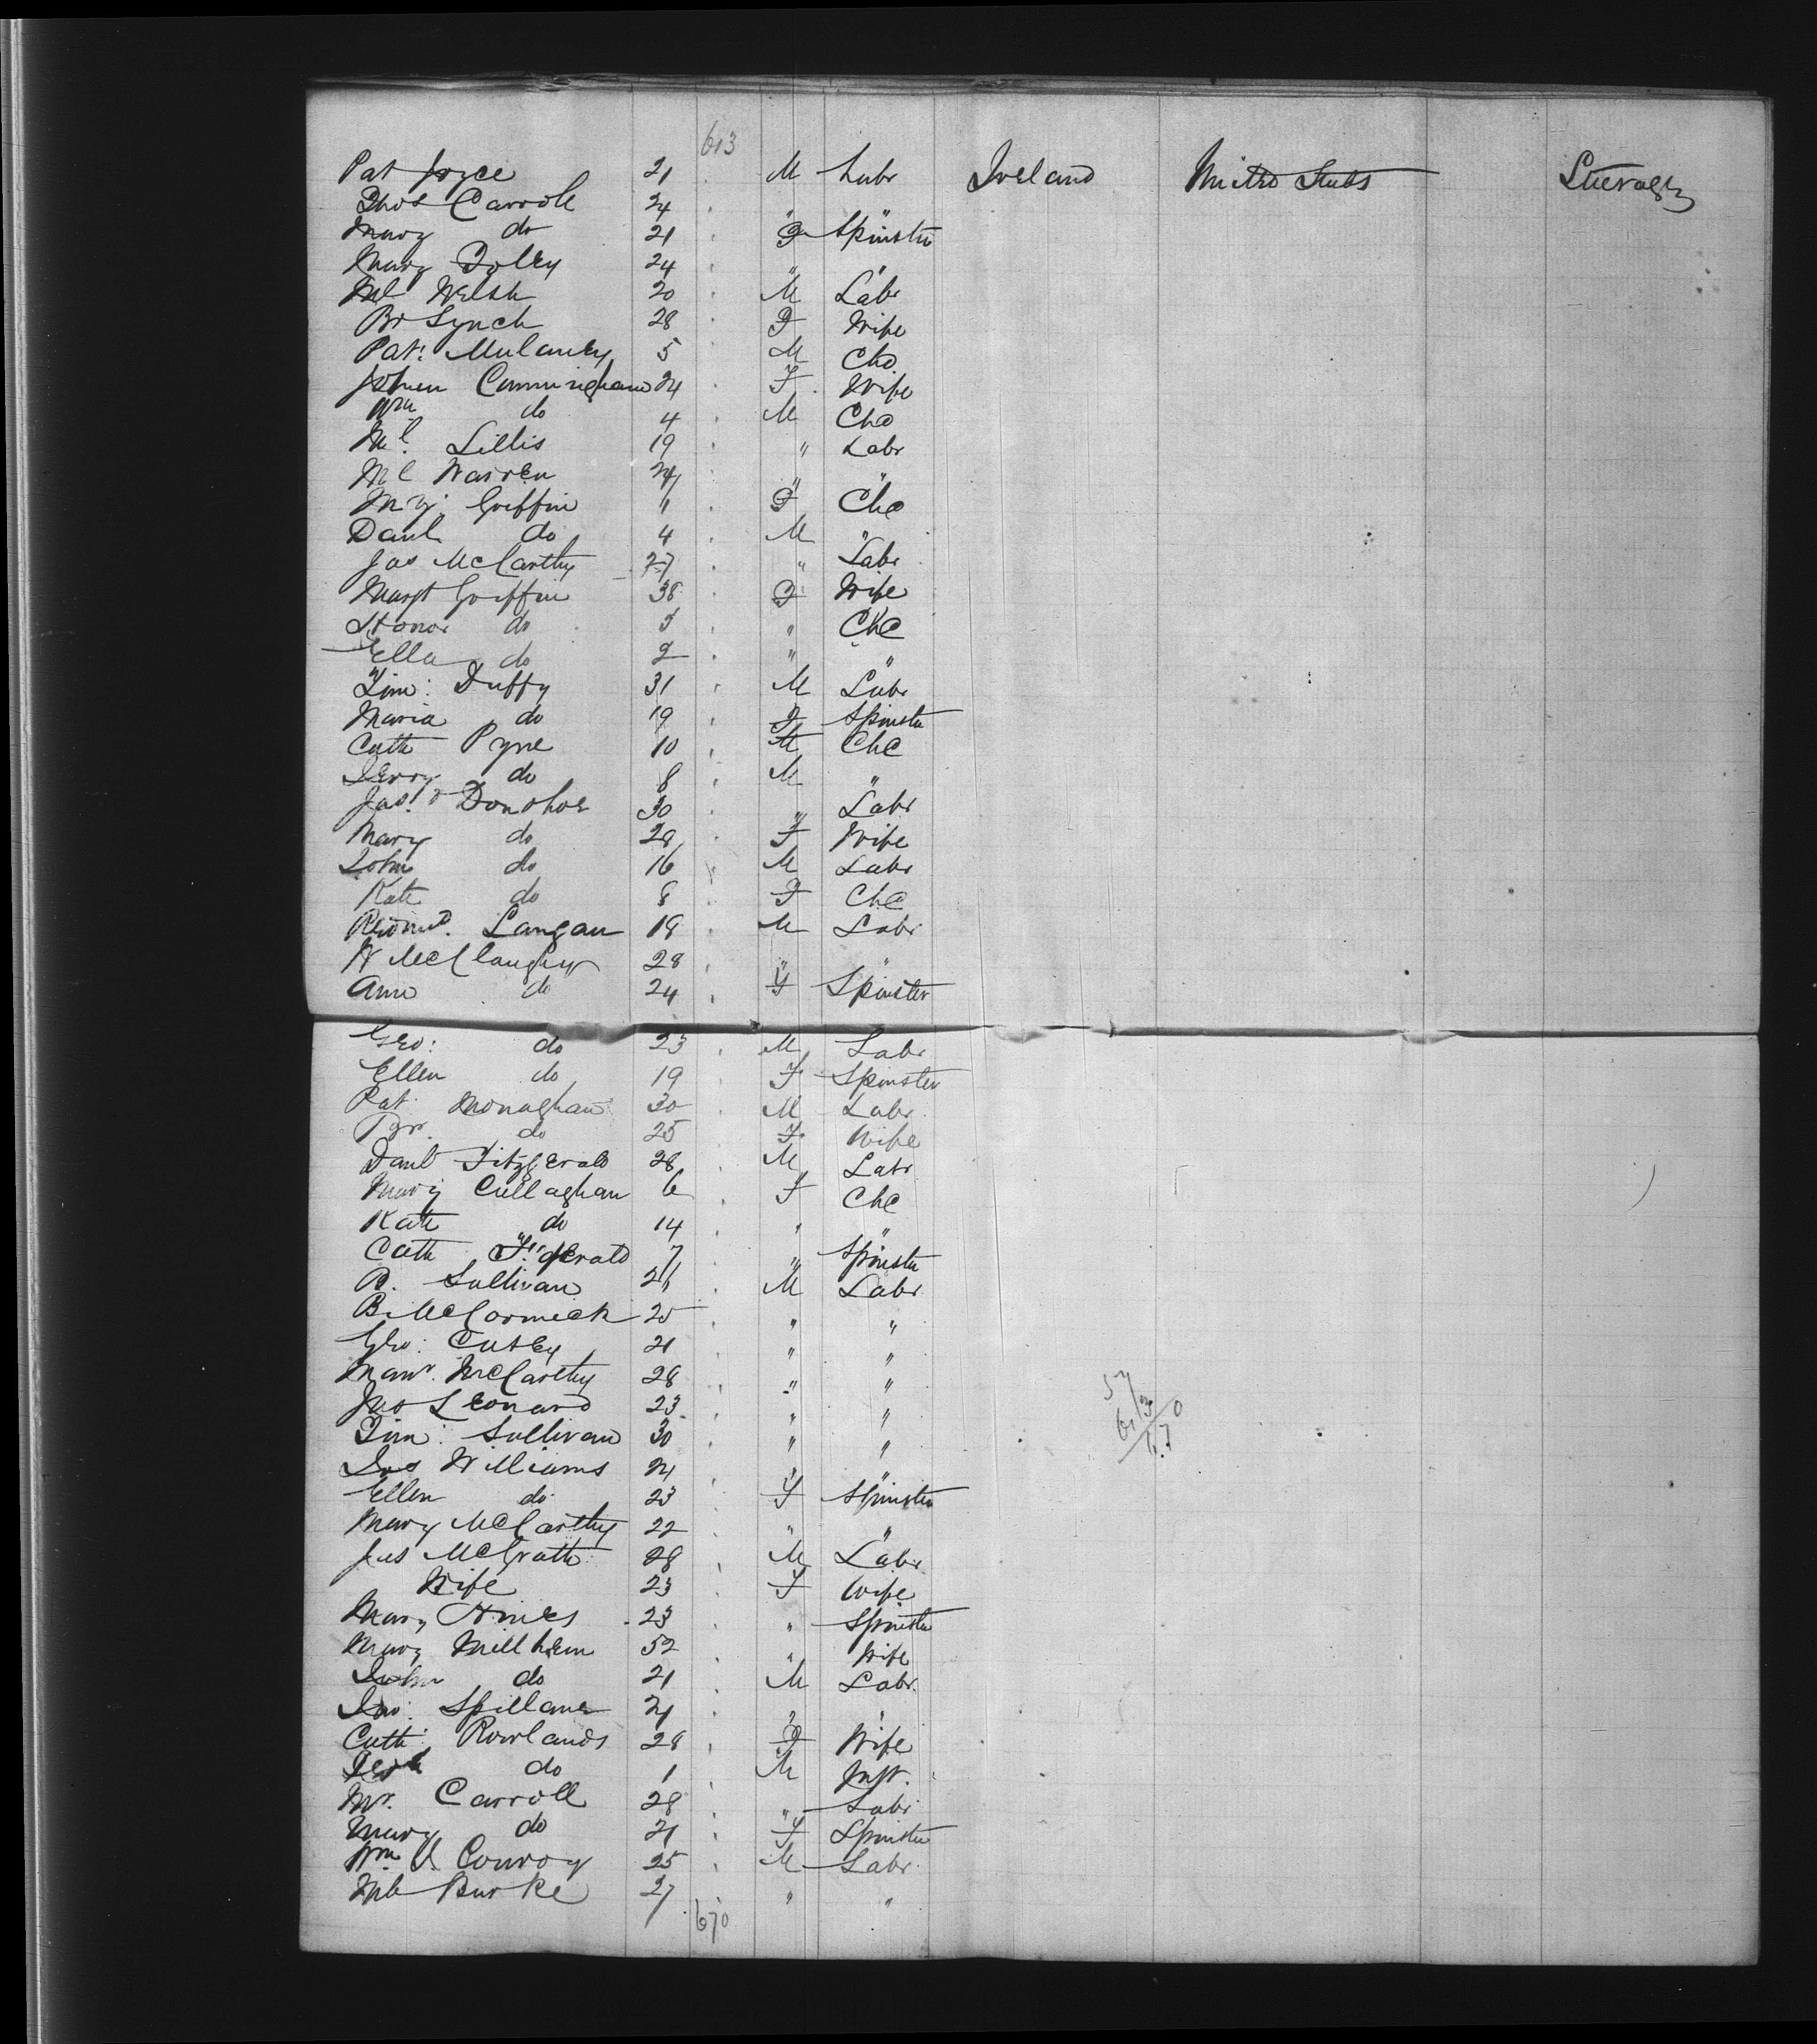 613
Pat Joyce 21 M Labr Ireland United States Steerage
Thos Carroll 24 " "
Mary do 21 F Spinster
Mary Foley 24 " "
Ml Welsh 20 M Labr
Br Lynch 28 F Wife
Pat: Mulaney 5 M Chd
Cunningham 24 F Wife
Wm do 4 M Chd
Ml. Lillis 19 " Labr
Ml Warren 24 " "
My: Griffin 11 F Chd
Danl do 4 M "
Jas McCarthy 27 " Labr
Margt Griffin 38 F Wife
Honor do 5 " Chd
Ella do 2 " "
Tim: Duffy 31 M Labr
Maria do 19 F Spinster
Cath Pyne 10 F Chd
Jerry do 8 M "
Jas. Donohoe 30 " Labr
Mary do 28 F Wife
John do 16 M Labr
Kate do 8 F Chd
Langan 19 M Labr
W McClaughry 28 " "
Ann do 24 F Spinster
Geo: do 23 M Labr
Ellen do 19 F Spinster
Pat Monaghan 30 M Labr
do 25 F Wife
Danl Fitzgerald 28 M Labr
Mary Callaghan 6 F Chd
Kate do 14 " "
Cath Fitzgerald " Spinster
P. Sullivan 26 M Labr
B. McCormick 25 " "
Geo: Cusey 21 " "
McCarthy 28 " "
Jno Leonard 23 " "
Tim: Sullivan 30 " "
Jas Williams 24 " "
Ellen do 23 F Spinster
Mary McCarthy 22 " "
Jas McGrath 28 M Labr
Wife 23 F Wife
Mary Hines 23 " Spinster
Mary Millhem 52 " Wife
John do 21 M Labr.
Jno: Spillane 21 " "
Cath: Rowlands 28 F Wife
do 1 M Inft.
Mr. Carroll 28 " Labr
Mary do 21 F Spinster
Wm Conroy 25 M Labr
Ml Burke 27 " "
670
57
613
670